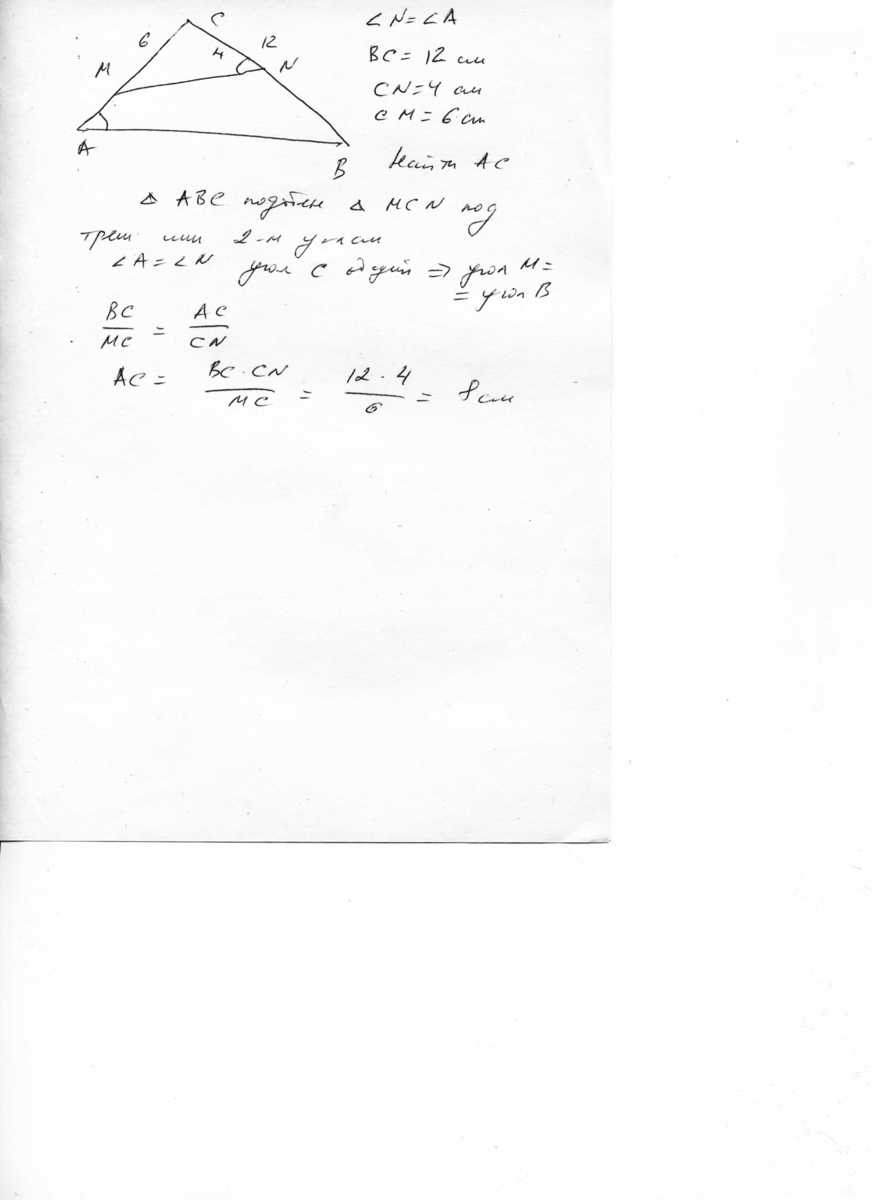 C
6
12
4
M
N
A
B
∠N=∠A
BC=12 см
CN=4 см
CM=6 см
Найти AC
△ ABC подобен △ MCN под
трем или 2-м углам
∠A=∠N угол C общий => угол M=
= угол B
BC/MC = AC/CN
AC= BC·CN/MC = 12·4/6 = 8 см